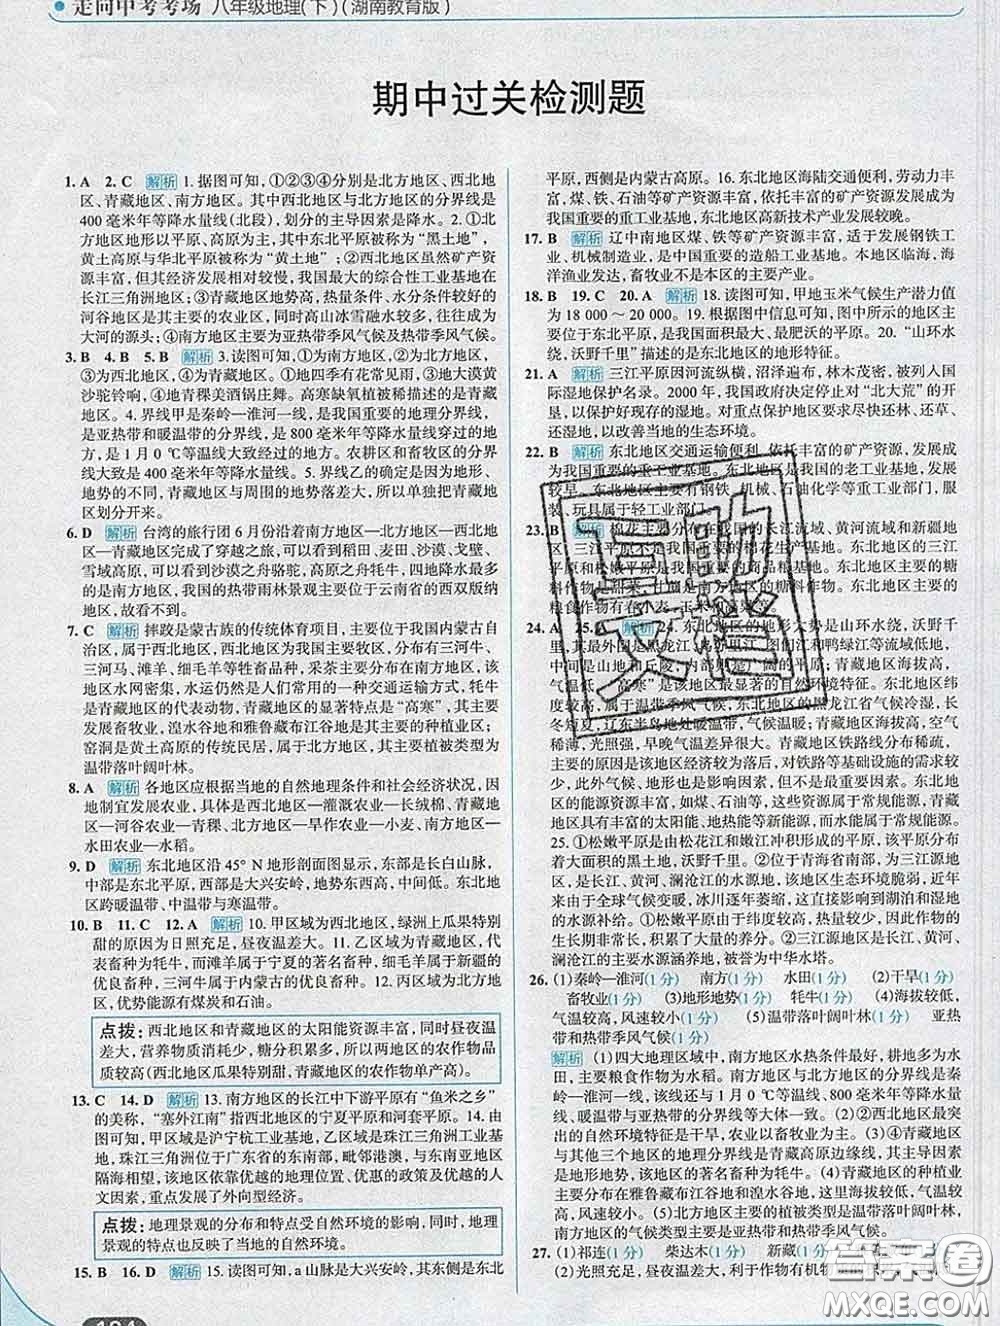 走向中考考场 八年级地理(下)(湖南教育版)
期中过关检测题
1. A 2. C 解析 1. 据图可知，①②③④分别是北方地区、西北地
区、青藏地区、南方地区。其中西北地区与北方地区的分界线是
400 毫米年等降水量线(北段)，划分的主导因素是降水。2. ①北
方地区地形以平原、高原为主，其中东北平原被称为“黑土地”，
黄土高原与华北平原被称为“黄土地”；②西北地区虽然矿产资
源丰富，但其经济发展相对较慢，我国最大的综合性工业基地在
长江三角洲地区；③青藏地区地势高，热量条件、水分条件较好的
河谷地区是其主要的农业区，同时高山冰雪融水较多，往往成为
大河的源头；④南方地区主要为亚热带季风气候及热带季风气候。
3. B 4. B 5. B 解析 3. 读图可知，①为南方地区，②为北方地区，
③为西北地区，④为青藏地区。①地四季有花常见雨，③地大漠黄
沙驼铃响，④地青稞美酒锅庄舞。高寒缺氧植被稀描述的是青藏
地区。4. 界线甲是秦岭—淮河一线，是我国重要的地理分界线，
是亚热带和暖温带的分界线，是 800 毫米年等降水量线穿过的地
方，是 1 月 0 ℃等温线大致经过的地方。农耕区和畜牧区的分界
线大致是 400 毫米年等降水量线。5. 界线乙的确定因素是地形、
地势的不同，青藏地区与周围的地势落差大，所以单独把青藏地
区划分开来。
6. D 解析 台湾的旅行团 6 月份沿着南方地区—北方地区—西北地
区—青藏地区完成了穿越之旅，可以看到稻田、麦田、沙漠、戈壁、
雪域高原，可以看到沙漠之舟骆驼，高原之舟牦牛，四地降水最多
的是南方地区，我国的热带雨林景观主要位于云南省的西双版纳
地区，故看不到。
7. C 解析 摔跤是蒙古族的传统体育项目，主要位于我国内蒙古自
治区，属于西北地区，西北地区为我国主要牧区，分布有三河牛、
三河马、滩羊、细毛羊等牲畜品种，采茶主要分布在南方地区，该
地区水网密集，水运仍然是人们常用的一种交通运输方式，牦牛
是青藏地区的代表动物，青藏地区的显著特点是“高寒”，其主要
发展畜牧业，湟水谷地和雅鲁藏布江谷地是其主要的种植业区；
窑洞是黄土高原的传统民居，属于北方地区，其主要植被类型为
温带落叶阔叶林。
8. A 解析 各地区应根据当地的自然地理条件和社会经济状况，因
地制宜发展农业，具体是西北地区—灌溉农业—长绒棉，青藏地区
—河谷农业—青稞、北方地区—旱作农业—小麦、南方地区—
水田农业—水稻。
9. D 解析 东北地区沿 45° N 地形剖面图显示，东部是长白山脉，
中部是东北平原，西部是大兴安岭，地势东西高，中间低。东北地
区跨暖温带、中温带与寒温带。
10. B 11. C 12. A 解析 10. 甲区域为西北地区，绿洲上瓜果特别
甜的原因为日照充足，昼夜温差大。11. 乙区域为青藏地区，耗牛
为其优良畜种，而滩羊属于宁夏的著名畜种，细毛羊属于新疆的
优良畜种，三河牛属于内蒙古的优良畜种。12. 丙区域为北方地
区，优势能源有煤炭和石油。
点拨：西北地区和青藏地区的太阳能资源丰富，同时昼夜温
差大，营养物质消耗少，糖分积累多，所以两地区的农作物品
质较高(西北地区瓜果特别甜，青藏地区的农作物单产高)。
13. C 14. D 解析 13. 南方地区的长江中下游平原有“鱼米之乡”
的美称，“塞外江南”指西北地区的宁夏平原和河套平原。14. 由
图可知，甲区域是沪宁杭工业基地，乙区域是珠江三角洲工业基地，
珠江三角洲位于广东省的东南部，毗邻港澳，与东南亚地区
隔海相望，该地区依靠优越的地理位置、优惠的政策及优越的人
文因素，重点发展了外向型经济。
点拨：地理景观的分布和特点受自然环境的影响，同时，地理
景观的特点也反映了当地的自然环境。
15. B 16. D 解析 15. 读图可知，a 山脉是大兴安岭，其东侧是东北
平原，西侧是内蒙古高原。16. 东北地区海陆交通便利，劳动力丰
富，煤、铁、石油等矿产资源丰富，依托丰富的矿产资源，发展成为
我国重要的重工业基地，东北地区高新技术产业发展较晚。
17. B 解析 辽中南地区煤、铁等矿产资源丰富，适于发展钢铁工
业、机械制造业，是中国重要的造船工业基地。本地区临海，海
洋渔业发达，畜牧业不是本区的主要产业。
18. B 19. C 20. A 解析 18. 读图可知，甲地玉米气候生产潜力值
为 18 000 ~ 20 000。19. 根据图中信息可知，图中所示的地区主
要位于东北平原，是我国面积最大、最肥沃的平原。20. “山环水
绕，沃野千里”描述的是东北地区的地形特征。
21. A 解析 三江平原因河流纵横，沼泽遍布，林木茂密，被列入国
际湿地保护名录。2000 年，我国政府决定停止对“北大荒”的开
垦，以保护好现存的湿地。对重点保护地区要求尽快还林、还草、
还湿地，以改善当地的生态环境。
22. B 解析 东北地区交通运输便利，依托丰富的矿产资源，发展成
为我国重要的重工业基地。东北地区是我国的老工业基地，发展
较早。东北地区主要有钢铁、机械、石油化学等重工业部门，服
装、玩具属于轻工业部门。
23. B 解析 棉花主要分布在我国的长江流域、黄河流域和新疆地
区，三江平原不是我国主要的棉花生产基地。东北地区的三江
平原和松嫩平原是我国主要的商品粮基地。东北地区主要的糖
料作物是甜菜，油料作物是大豆。东北地区主要的
粮食作物有春小麦、玉米和
24. A 25. 解析 24. 东北地区的地形大势是山环水绕，沃野千
里，其最外围是黑龙江、乌苏里江、图们江和鸭绿江等流域低地，
中间是山地和丘陵，内部则是广阔的平原；青藏地区海拔高，
气温低，“高寒”是该地区最显著的自然环境特征。东北地区纬
度较高，属于温带季风气候，东北地区北部的黑龙江省气候冷湿，长
冬短夏，辽东半岛地处暖温带，气候温暖；青藏高原海拔高，空气
稀薄，光照强，早晚气温差异很大。青藏地区铁路线分布稀疏，
主要原因是该地区经济较为落后，对铁路等基础设施的需求较
少，此外气候、地形也是影响因素，但不是最主要的因素。东北地
区的能源资源丰富，如煤、石油等，这些资源属于常规能源，青藏
地区有丰富的太阳能、地热能等新能源，而水能属于常规能源。
25. ①松嫩平原是由松花江和嫩江冲积形成的平原，该平原分布
着大面积的黑土地，沃野千里。②位于青海省南部，为三江源地
区，是长江、黄河、澜沧江的水源地，该地区生态环境脆弱，近年
来由于全球气候变暖，冰川逐年萎缩，直接影响到湖泊和湿地的
水源补给。①松嫩平原由于纬度较高，热量不足，因此作物的生
长期较长，积累了大量的养分。②三江源地区是长江、黄河、
澜沧江的水源涵养地，被誉为中华水塔。
26. (1)秦岭—淮河(1 分) 南方(1 分) 水田(1 分) (2)干旱(1 分)
畜牧业(1 分) (3)地形地势(1 分) 牦牛(1 分) (4)海拔较低，
气温较高，风速较小(1 分) (5)温带落叶阔叶林(1 分) 亚热
带和热带季风气候(1 分)
解析 (1)四大地理区域中，南方地区水热条件最好，耕地多为水
田，主要粮食作物为水稻。南方地区与北方地区的分界线为秦
岭—淮河一线，该线还与 1 月 0 ℃等温线、800 毫米年等降水量
线、暖温带与亚热带的分界线等大体一致。(2)②西北地区最突
出的自然环境特征是干旱，农业以畜牧业为主。(3)④青藏地区
与其他三个地区的地理分界线是青藏高原边缘线，其主导因素
是地形地势，该地区的著名畜种为牦牛。(4)青藏地区的种植业
主要分布在雅鲁藏布江谷地和湟水谷地，这里海拔较低，气温较
高，风速较小。(5)北方地区的植被类型是温带落叶阔叶林，
南方地区的气候类型主要是亚热带和热带季风气候。
27. (1)祁连(1 分) 柴达木(1 分) 新藏(1 分)
(2)光照充足，昼夜温差大，利于作物有机物质
答案卷
MXQE.COM